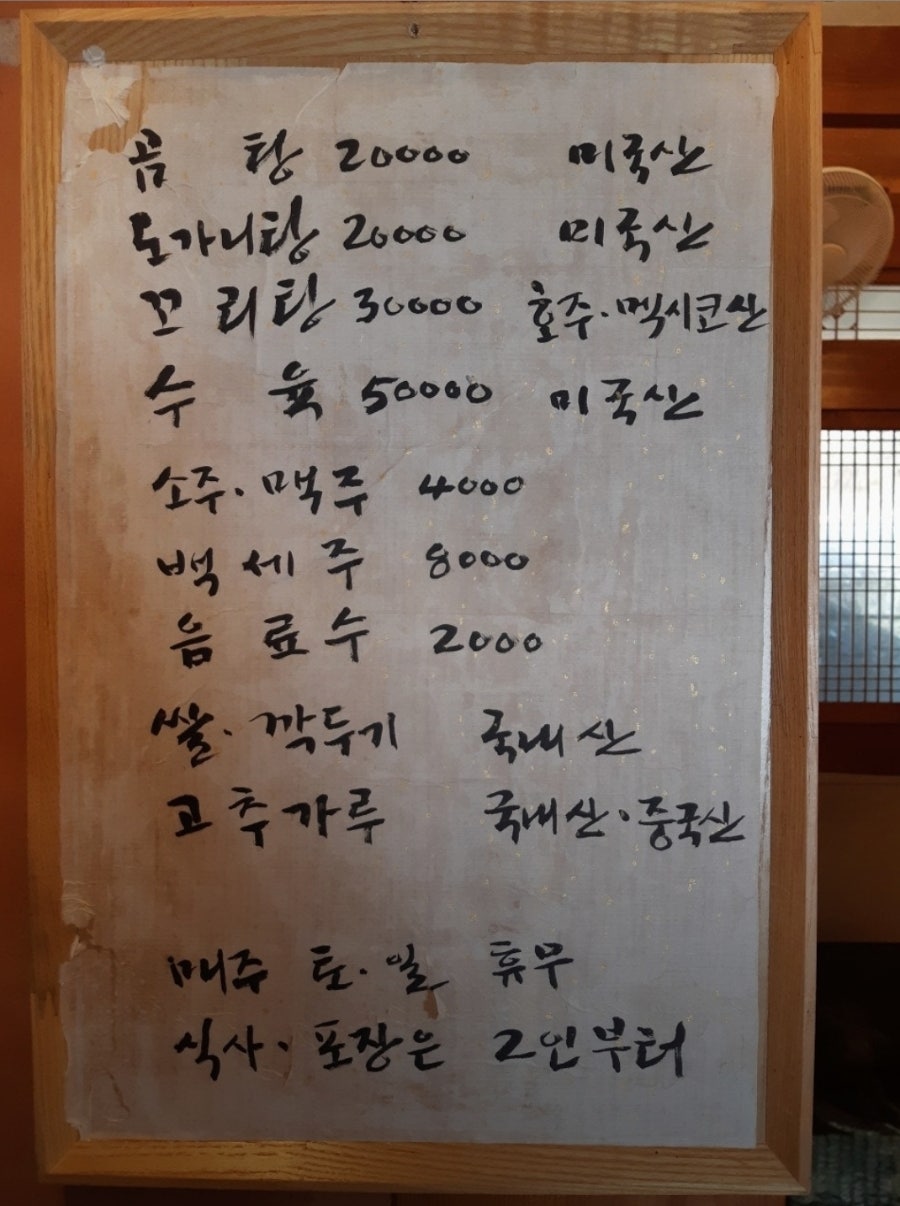 곰 탕 20000 미국산
도가니탕 20000 미국산
꼬리탕 30000 호주·멕시코산
수 육 50000 미국산
소주·맥주 4000
백세주 8000
음료수 2000
쌀·깍두기 국내산
고추가루 국내산·중국산
매주 토·일 휴무
식사·포장은 2인부터